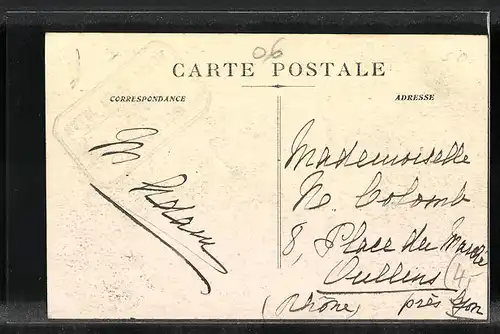 06
CARTE POSTALE
CORRESPONDANCE
ADRESSE
M. Adam
Mademoiselle
N. Colomb
8, Place du Marché
Oullins (4
(Rhône) près Lyon